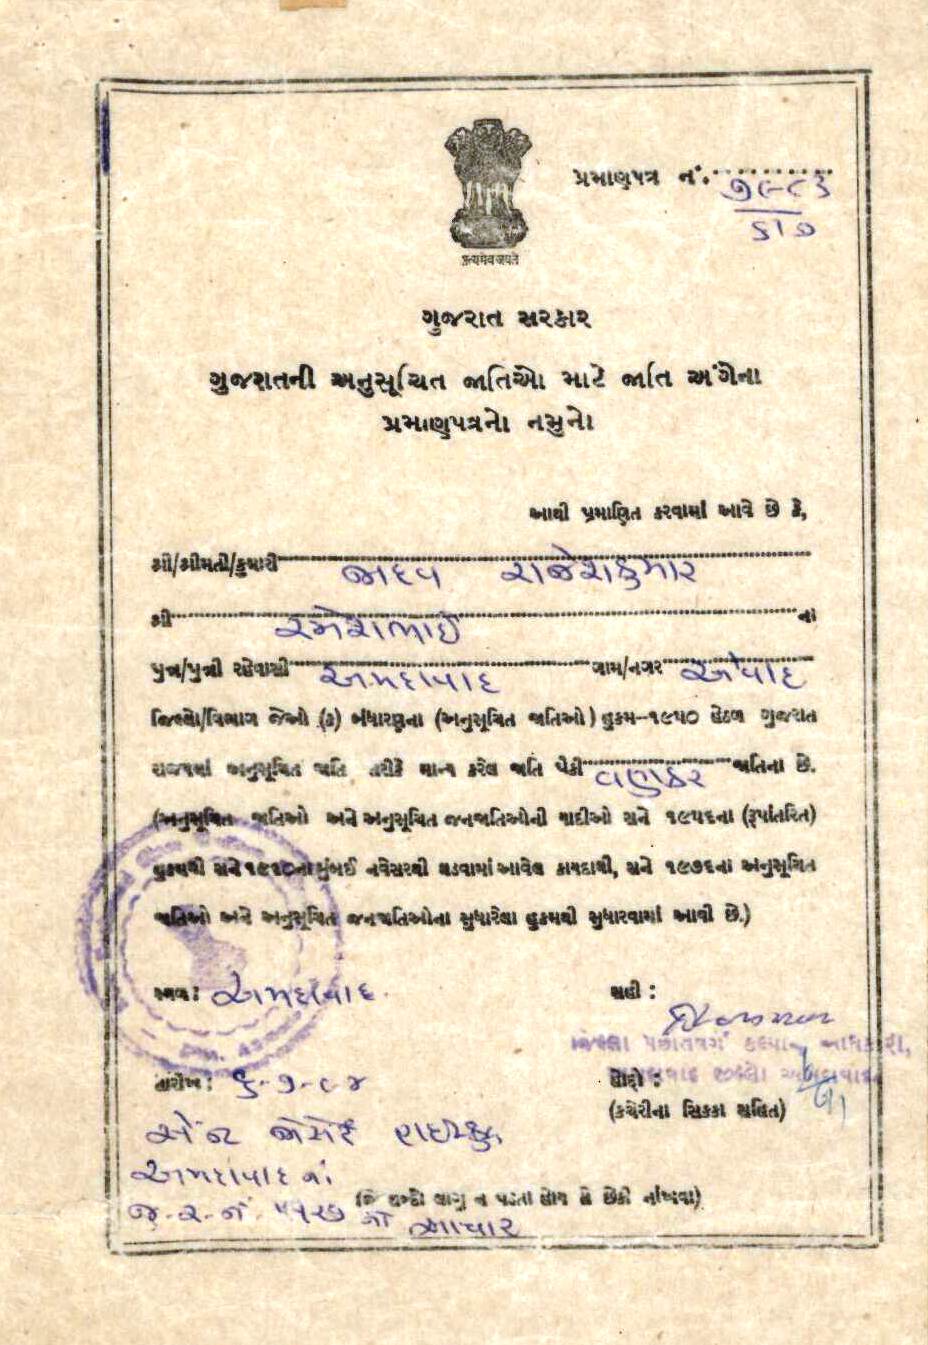 પ્રમાણપત્ર નં.
सत्यमेव जयते
ગુજરાત સરકાર
ગુજરાતની અનુસૂચિત જાતિઓ માટે જાતિ અંગેના
પ્રમાણપત્રનો નમુનો
આથી પ્રમાણિત કરવામાં આવે છે કે,
શ્રી/શ્રીમતી/કુમારી જાદવ રાજેશકુમાર
શ્રી રમેશભાઈ ના
પુત્ર/પુત્રી રહેવાસી અમદાવાદ ગામ/નગર અ'વાદ
જિલ્લો/વિભાગ જેઓ (ક) બંધારણના (અનુસૂચિત જાતિઓ) હુકમ-૧૯૫૦ હેઠળ ગુજરાત
રાજ્યમાં અનુસૂચિત જાતિ તરીકે માન્ય કરેલ જાતિ પૈકી વણકર જાતિના છે.
(અનુસૂચિત જાતિઓ અને અનુસૂચિત જનજાતિઓની યાદીઓ સને ૧૯૫૬ના (રૂપાંતરિત)
હુકમથી સને ૧૯૬૦ના મુંબઈ નવેસરથી ઘડવામાં આવેલ કાયદાથી, સને ૧૯૭૬ના અનુસૂચિત
જાતિઓ અને અનુસૂચિત જનજાતિઓના સુધારેલા હુકમથી સુધારવામાં આવી છે.)
સ્થળ: અમદાવાદ
સહી :
જિલ્લા પછાતવર્ગ કલ્યાણ અધિકારી,
અમદાવાદ જીલ્લો અમદાવાદ
તારીખ : ૬-૭-૮૪
હોદ્દો :
(કચેરીના સિક્કા સહિત)
હાઈસ્કુલ
અમદાવાદ નાં
(જે શબ્દો લાગુ ન પડતા હોય તે છેકી નાંખવા)
જ.ર.નં. ૫૧૨૭ નાં આધારે